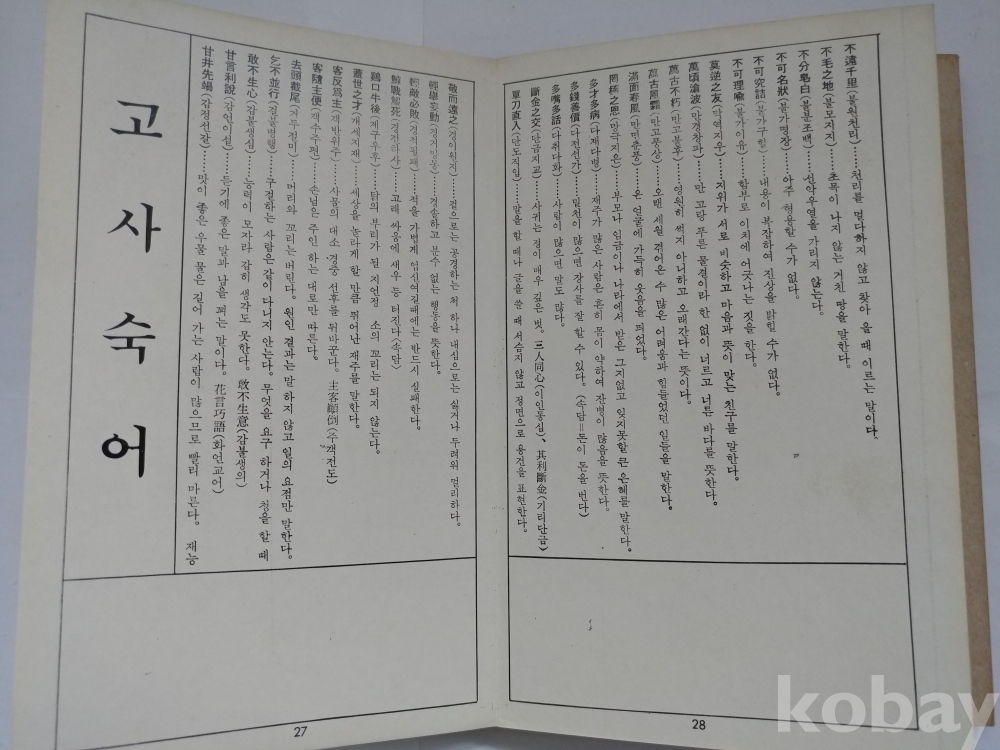 고사숙어
甘井先竭(감정선갈)……맛이 좋은 우물 물은 길어 가는 사람이 많으므로 빨리 마른다. 재능
甘言利說(감언이설)……듣기에 좋은 말과 남을 꾀는 말이다. 花言巧語(화언교어)
敢不生心(감불생심)……능력이 모자라 감히 생각도 못한다. 敢不生意(감불생의)
乞不並行(걸불병행)……구걸하는 사람은 같이 다니지 안는다. 무엇을 요구 하거나 청을 할 때
去頭截尾(거두절미)……머리와 꼬리는 버린다. 원인 결과는 말 하지 않고 일의 요점만 말한다.
客隨主便(객수주편)……손님은 주인 하는 대로만 따른다.
客反爲主(객반위주)……사물의 대소·경중 선후를 뒤바꾼다. 主客顚倒(주객전도)
蓋世之才(개세지재)……세상을 놀라게 할 만큼 뛰어난 재주를 말한다.
鷄口牛後(계구우후)……닭의 부리가 될 지언정 소의 꼬리는 되지 않는다.
鯨戰蝦死(경전하사)……고래 싸움에 새우 등 터진다(속담)
輕敵必敗(경적필패)……적을 가볍게 업신여길때에는 반드시 실패한다.
輕擧妄動(경거망동)……경솔하고 분수 없는 행동을 뜻한다.
敬而遠之(경이원지)……겉으로는 공경하는 체 하나 내심으로는 싫거나 두려워 멀리하다.
27
單刀直入(단도직입)……말을 할 때나 글을 쓸 때 서슴지 않고 정면으로 용건을 표현한다.
斷金之交(단금지교)……사귀는 정이 매우 깊은 벗. 三人同心(이인동심), 其利斷金(기리단금)
多嘴多話(다취다화)……사람이 많으면 말도 많다.
多錢善價(다전선가)……밑천이 많으면 장사를 잘 할 수 있다. (속담=돈이 돈을 번다)
多才多病(다재다병)……재주가 많은 사람은 흔히 몸이 약하여 잔병이 많음을 뜻한다.
罔極之恩(망극지은)……부모나 임금이나 나라에서 받은 그지없고 잊지못할 큰 은혜를 말한다.
滿面春風(만면춘풍)……온 얼굴에 가득히 웃음을 띄었다.
萬古風霜(만고풍상)……오랜 세월 겪어온 수 많은 어려움과 힘들었던 일들을 말한다.
萬古不朽(만고불후)……영원히 썩지 아니하고 오래간다는 뜻이다.
萬頃滄波(만경창파)……만 고랑 푸른 물결이라 한 없이 너르고 너른 바다를 뜻한다.
莫逆之友(막역지우)……지위가 서로 비슷하고 마음과 뜻이 맞는 친구를 말한다.
不可理喩(불가이유)……함부로 이치에 어긋나는 짓을 한다.
不可究詰(불가구힐)……내용이 복잡하여 진상을 밝힐 수가 없다.
不可名狀(불가명장)……아주 형용할 수가 없다.
不分皂白(불분조백)……선악우열을 가리지 않는다.
不毛之地(불모지지)……초목이 나지 않는 거친 땅을 말한다.
不遠千里(불원천리)……천리를 멀다하지 않고 찾아 올 때 이르는 말이다.
28
kobay